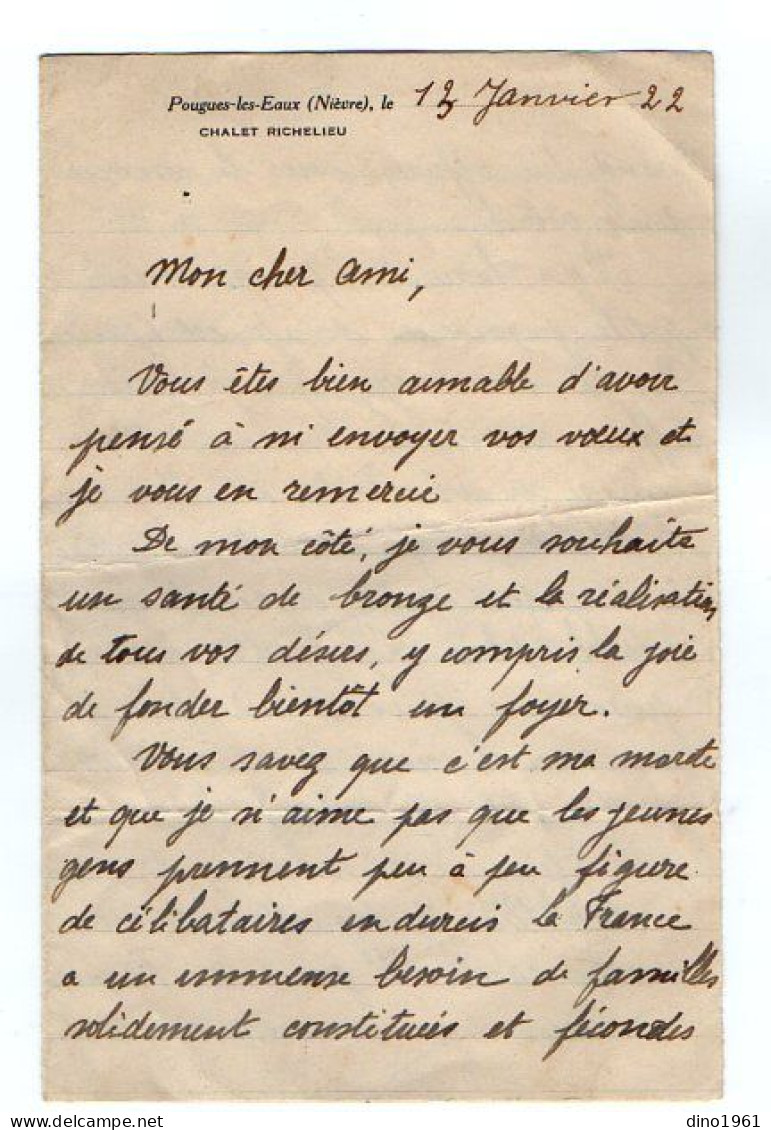 Pougues-les-Eaux (Nièvre), le 12 Janvier 22
CHALET RICHELIEU
Mon cher ami,
Vous êtes bien aimable d'avoir
pensé à m'envoyer vos vœux et
je vous en remercie
De mon côté, je vous souhaite
un santé de bronze et la réalisation
de tous vos désirs, y compris la joie
de fonder bientôt un foyer.
Vous savez que c'est ma marotte
et que je n'aime pas que les jeunes
gens prennent peu à peu figure
de célibataires endurcis la France
a un immense besoin de familles
solidement constituées et fécondes
dino1961